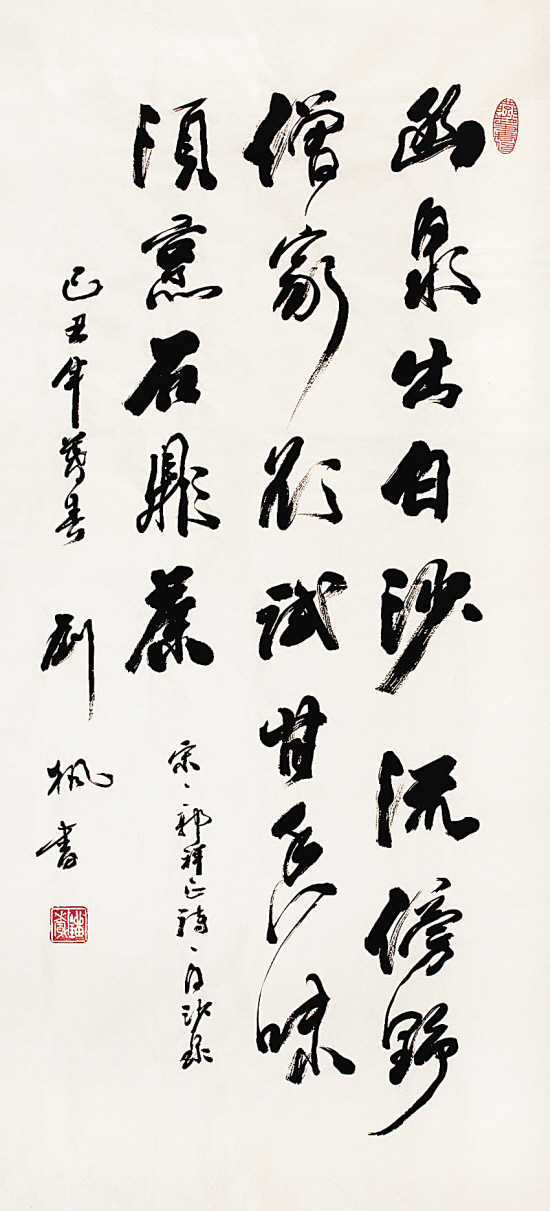 幽泉出白沙流傍野
僧家欲试甘香味
须烹石鼎茶
宋郭祥正诗白沙泉
己丑年暮春
刘枫书